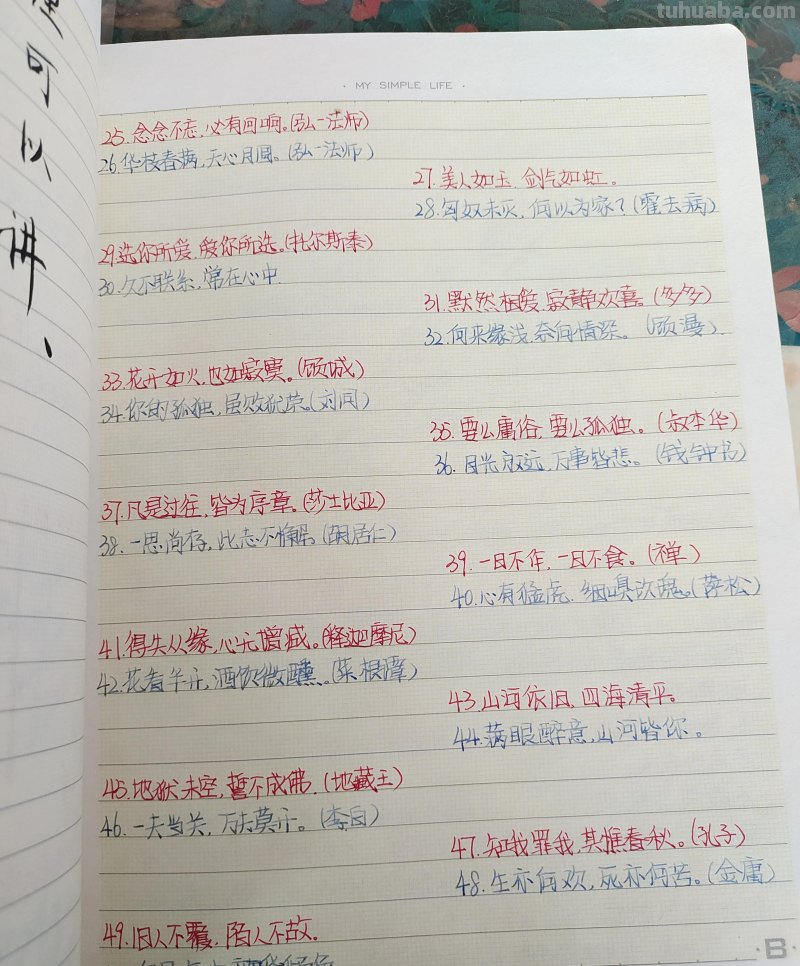 tuhuaba.com
里可以讲、
· MY SIMPLE LIFE ·
25. 念念不忘,必有回响。(弘一法师)
26. 华枝春满,天心月圆。(弘一法师)
27. 美人如玉,剑气如虹。
28. 匈奴未灭,何以为家?(霍去病)
29. 选你所爱,爱你所选。(托尔斯泰)
30. 久不联系,常在心中.
31. 默然相爱,寂静欢喜。(多多)
32. 向来缘浅,奈何情深。(顾漫).
33. 花开如火,也如寂寞。(顾城)
34. 你的孤独,虽败犹荣。(刘同)
35. 要么庸俗,要么孤独。(叔本华)
36. 目光放远,万事皆悲。(钱钟书)
37. 凡是过往,皆为序章。(莎士比亚)
38. 一思尚存,此志不懈。(胡居仁)
39. 一日不作,一日不食。(禅)
40. 心有猛虎,细嗅玫瑰。(萨松)
41. 得失从缘,心无增减。(释迦摩尼)
42. 花看半开,酒饮微醺。(菜根谭)
43. 山河依旧,四海清平。
44. 满眼醉意,山河皆你。
45. 地狱未空,誓不成佛.(地藏王)
46. 一夫当关,万夫莫开。(李白)
47. 知我罪我,其惟春秋。(孔子)
48. 生亦何欢,死亦何苦。(金庸)
49. 旧人不覆,陌人不故.
·B·